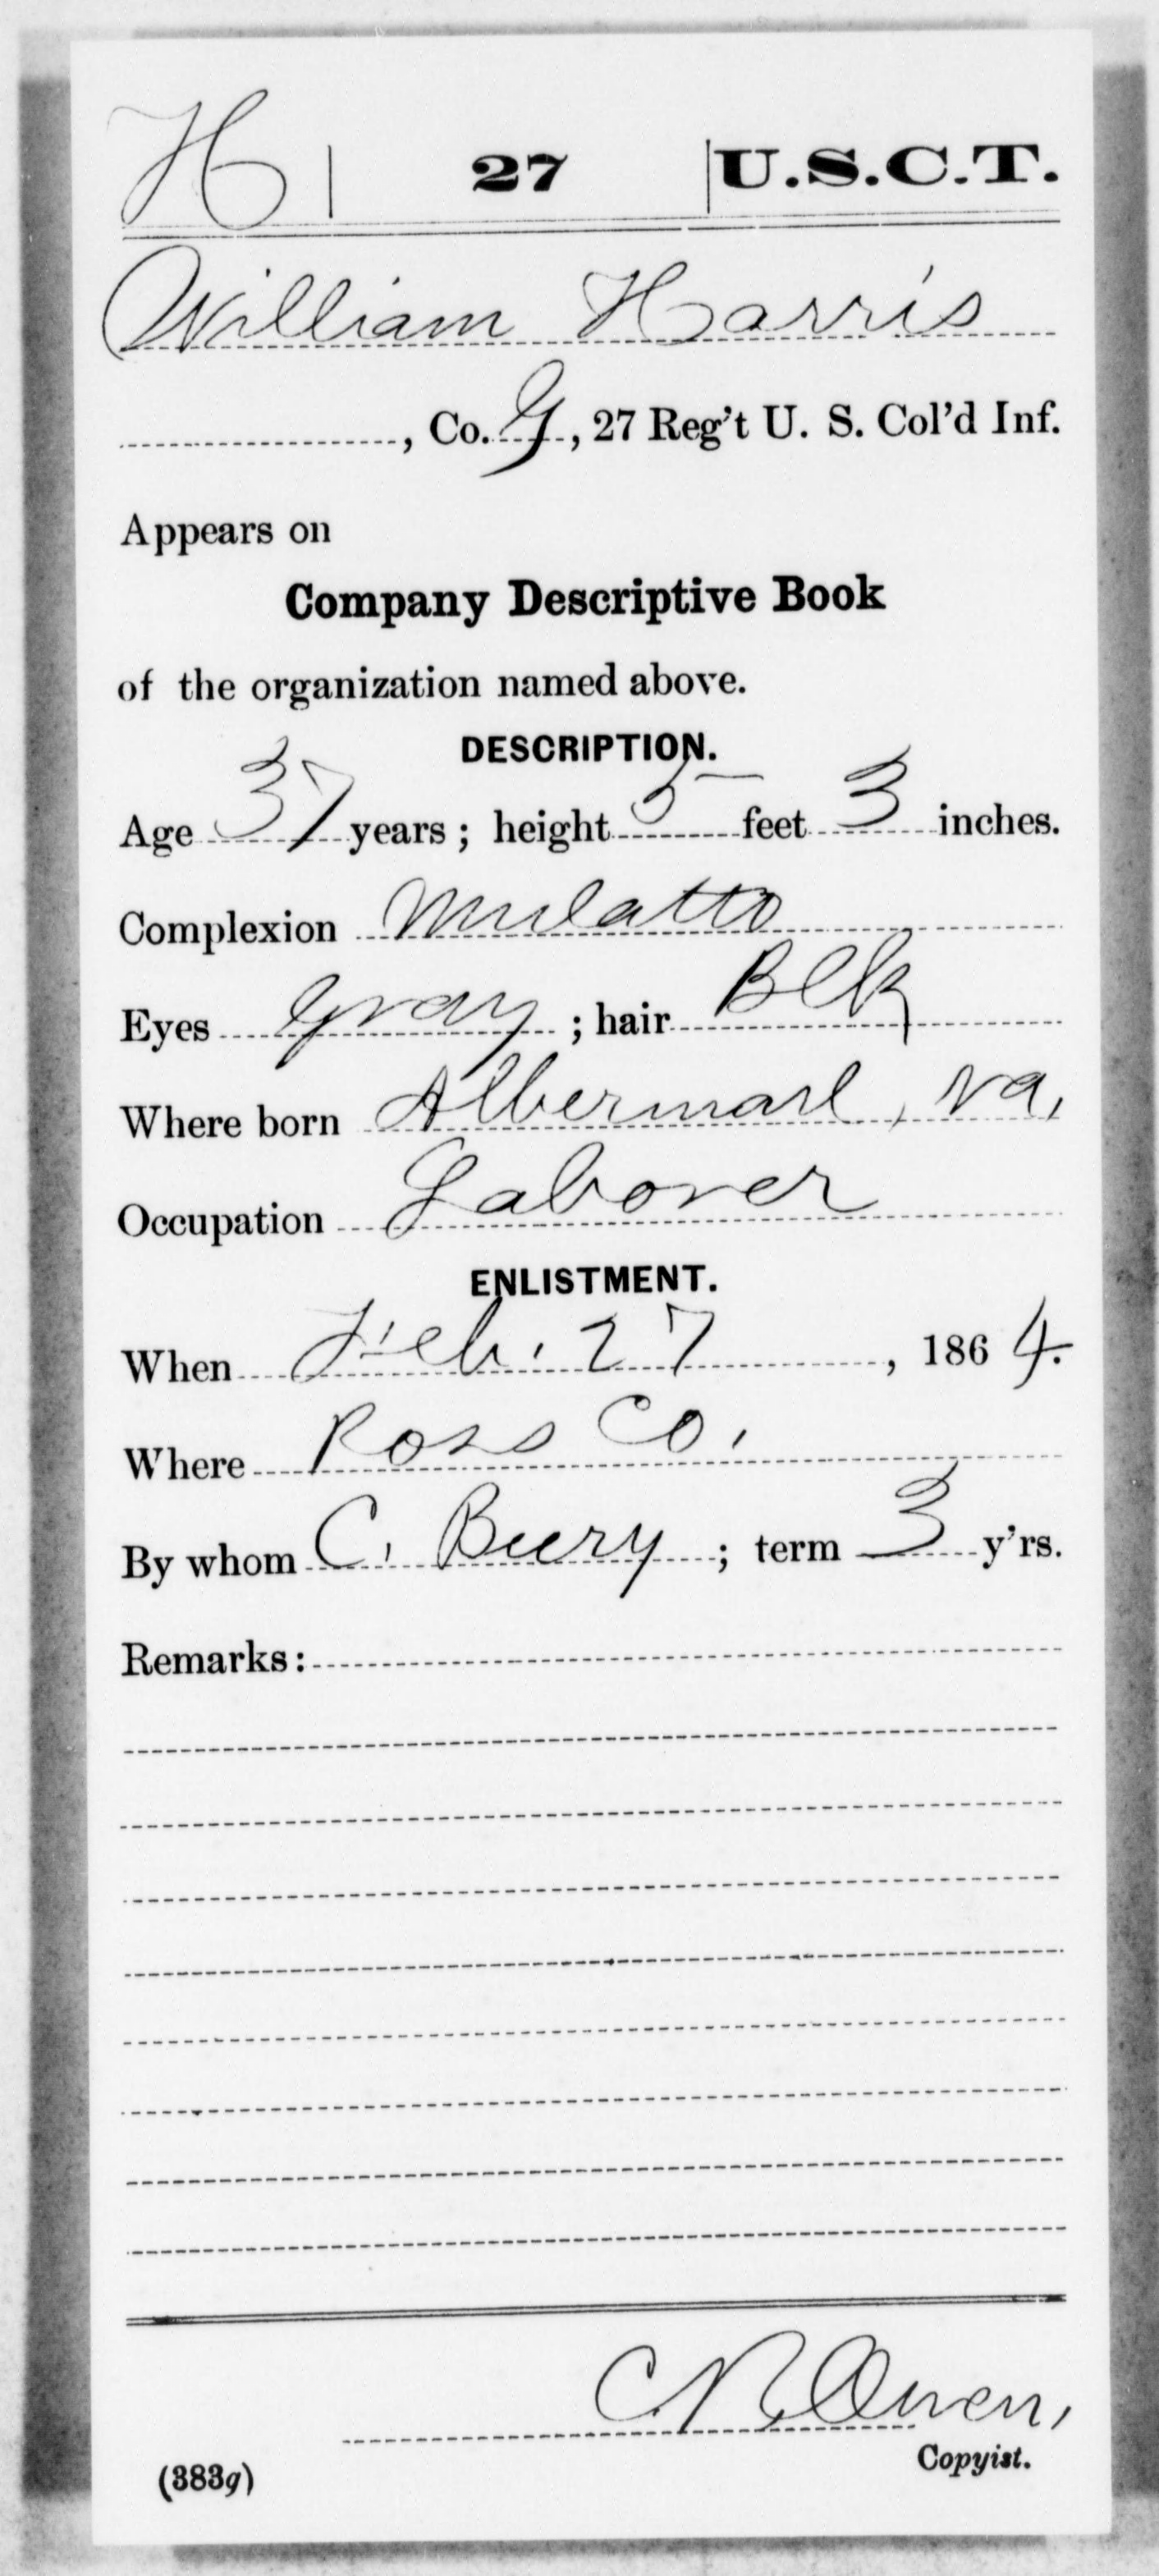 H 27 U.S.C.T.
William Harris
, Co. G, 27 Reg't U. S. Col'd Inf.
Appears on
Company Descriptive Book
of the organization named above.
DESCRIPTION.
Age 37 years; height 5 feet 3 inches.
Complexion Mulatto
Eyes Gray; hair Blk
Where born Albermarl, Va,
Occupation Laborer
ENLISTMENT.
When Feb. 27, 1864.
Where Ross Co.
By whom C. Buery; term 3 y'rs.
Remarks:
C R Owen,
Copyist.
(383g)